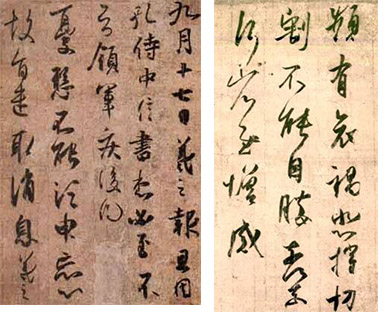 九月十七日羲之報且因
孔侍中信書想必至不
知領軍疾後問
憂懸不能須臾忘心
故旨遣取消息羲之
頻有哀禍悲摧切
割不能自勝奈何奈
何省慰增感